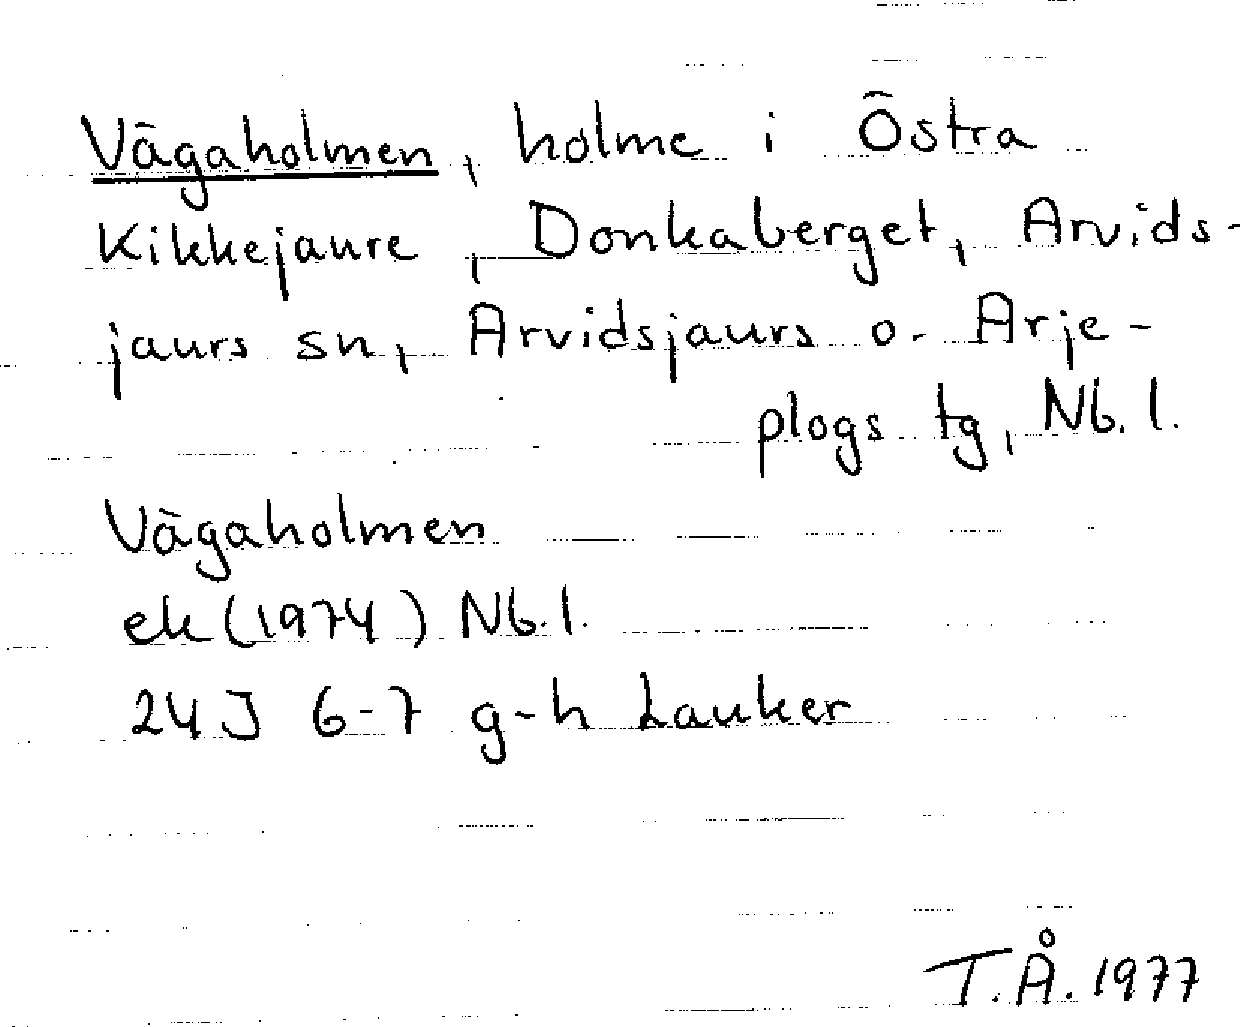 Vägaholmen, holme i Östra
Kikkejaure, Donkaberget, Arvids-
jaurs sn, Arvidsjaurs o. Arje-
plogs tg, Nb. l.
Vägaholmen
ek (1974) Nb. l.
24J 6-7 g-h Lauker
T.Å. 1977